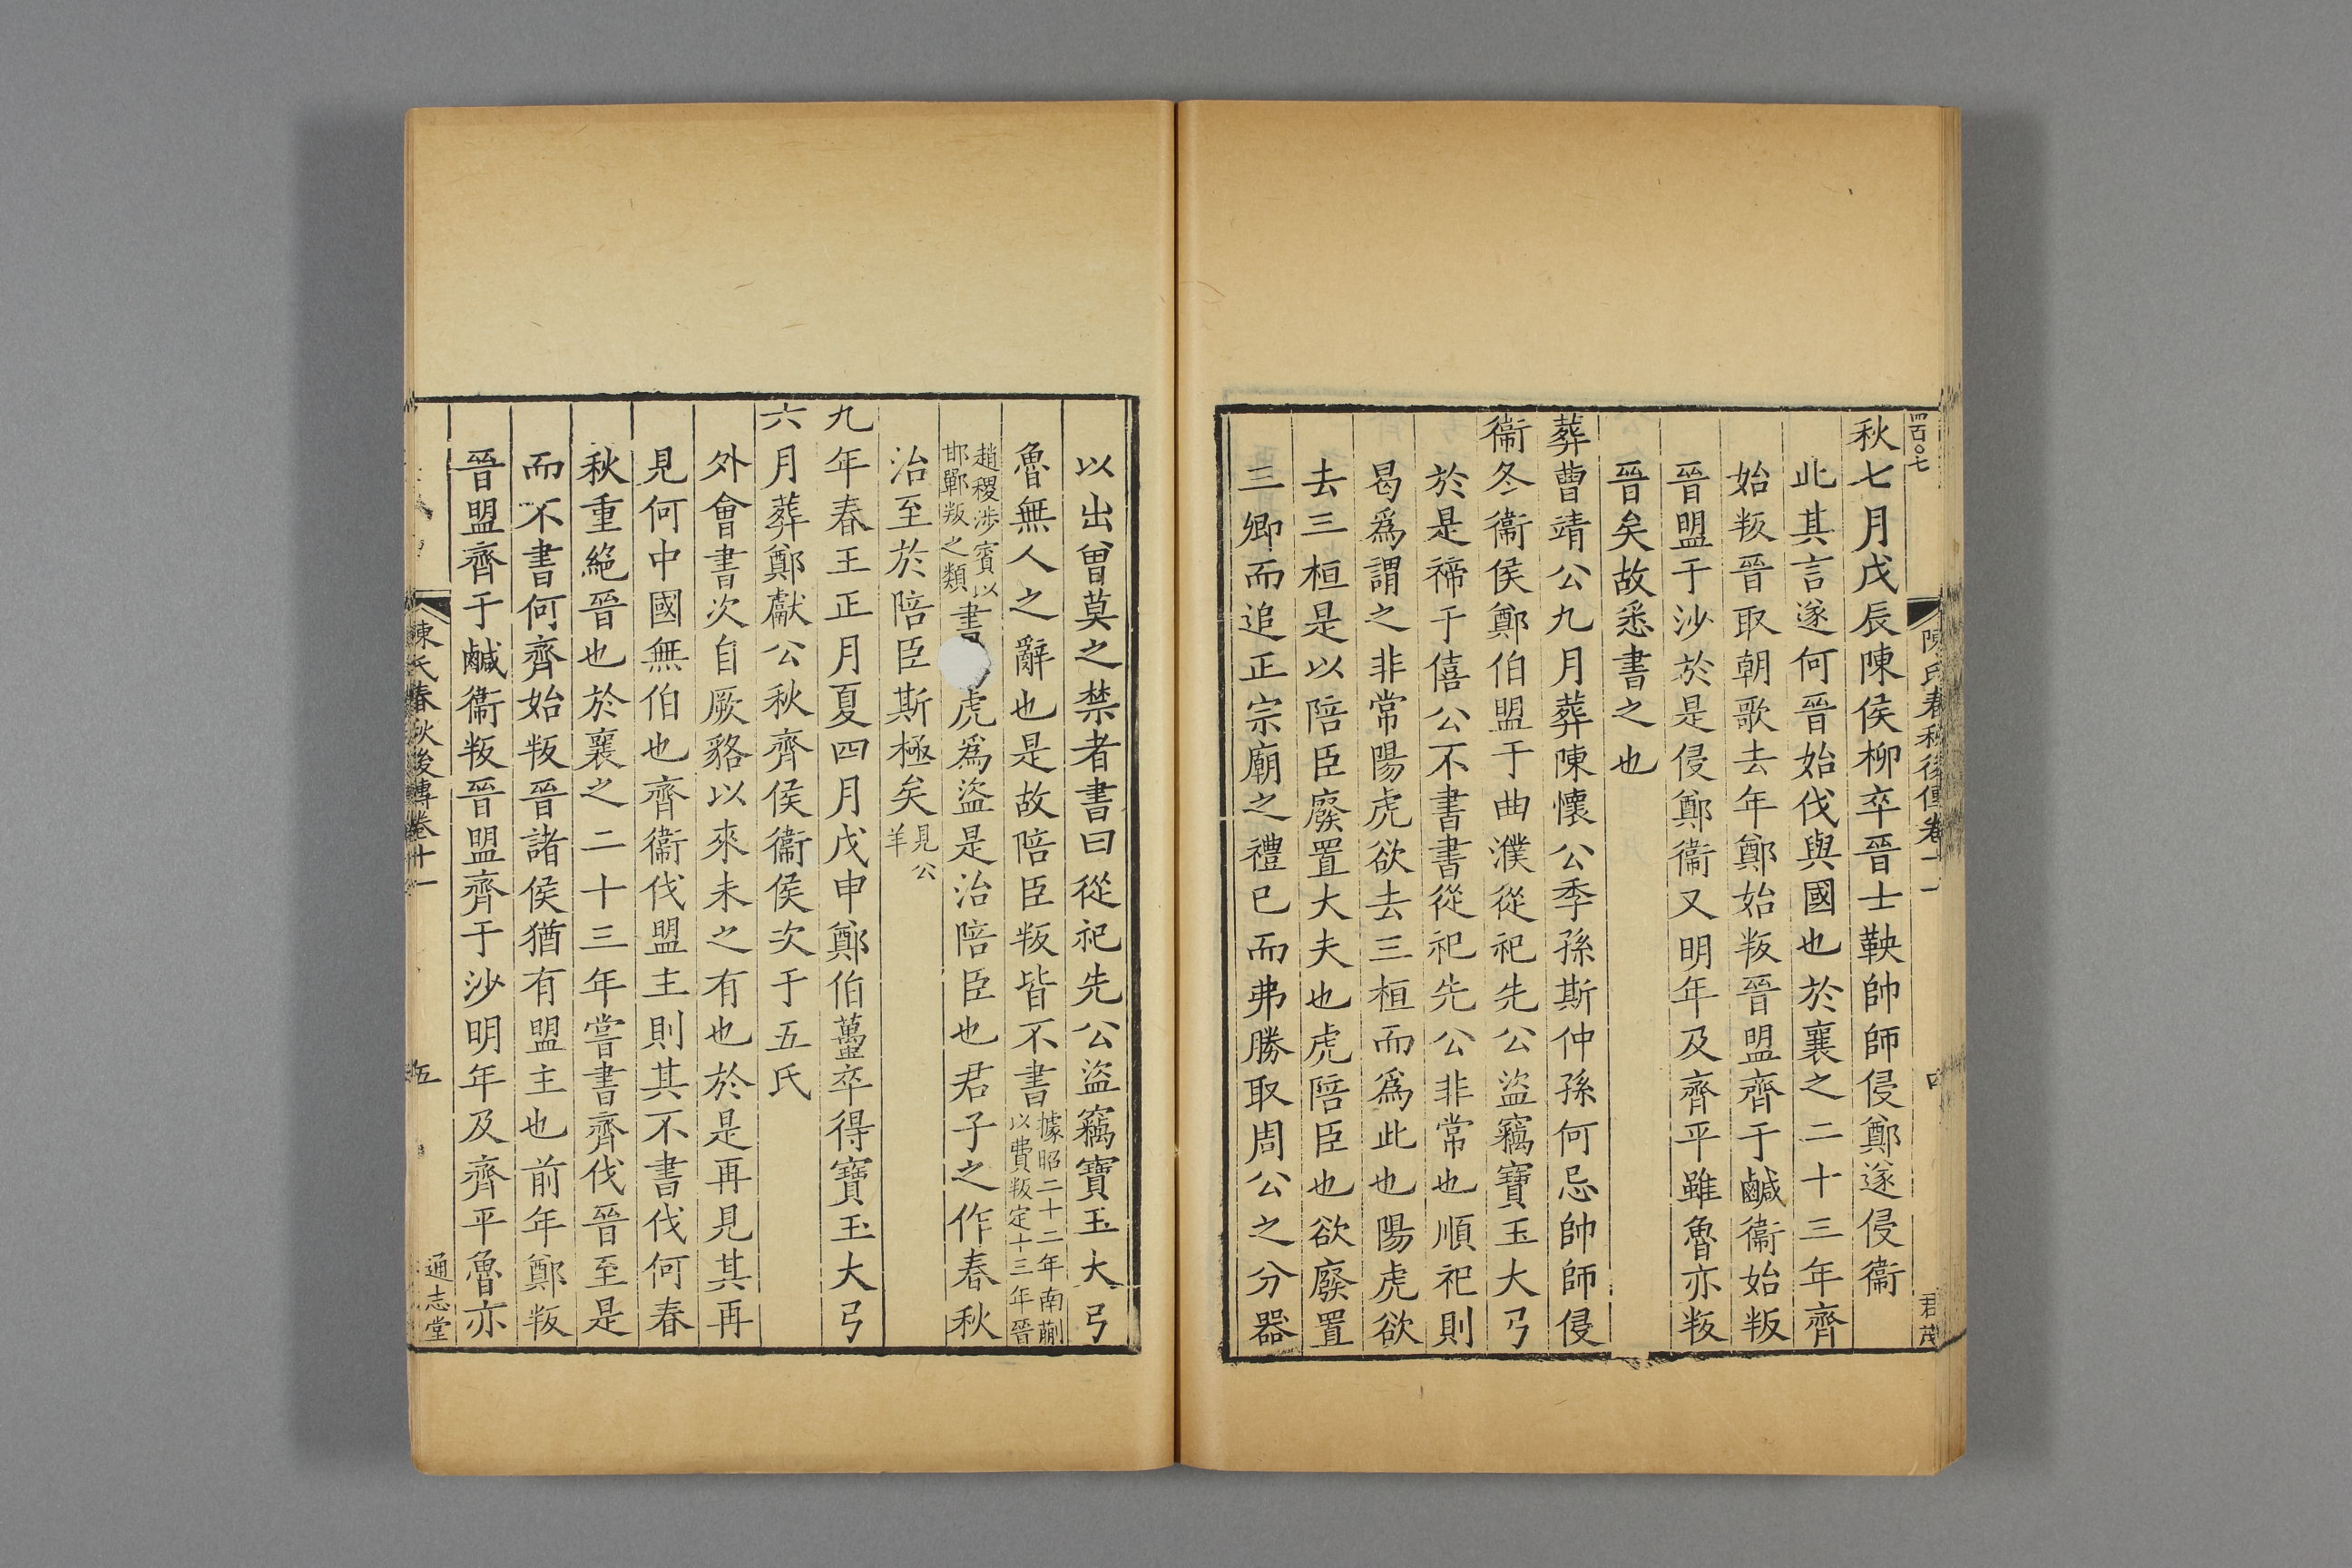 四百〇七
陳氏春秋後傳卷十一
四
君茂
秋七月戊辰陳侯柳卒晉士鞅帥師侵鄭遂侵衞
此其言遂何晉始伐與國也於襄之二十三年齊
始叛晉取朝歌去年鄭始叛晉盟齊于鹹衞始叛
晉盟于沙於是侵鄭衞又明年及齊平雖魯亦叛
晉矣故悉書之也
葬曹靖公九月葬陳懷公季孫斯仲孫何忌帥師侵
衞冬衞侯鄭伯盟于曲濮從祀先公盜竊寶玉大弓
於是禘于僖公不書書從祀先公非常也順祀則
曷爲謂之非常陽虎欲去三桓而爲此也陽虎欲
去三桓是以陪臣廢置大夫也虎陪臣也欲廢置
三卿而追正宗廟之禮已而弗勝取周公之分器
以出曾莫之禁者書曰從祀先公盜竊寶玉大弓
魯無人之辭也是故陪臣叛皆不書據昭二十二年南蒯以費叛定十三年晉
趙稷涉賓以邯鄲叛之類書虎爲盜是治陪臣也君子之作春秋
治至於陪臣斯極矣見公羊
九年春王正月夏四月戊申鄭伯蠆卒得寶玉大弓
六月葬鄭獻公秋齊侯衞侯次于五氏
外會書次自厥貉以來未之有也於是再見其再
見何中國無伯也齊衞伐盟主則其不書伐何春
秋重絕晉也於襄之二十三年嘗書齊伐晉至是
而不書何齊始叛晉諸侯猶有盟主也前年鄭叛
晉盟齊于鹹衞叛晉盟齊于沙明年及齊平魯亦
陳氏春秋後傳卷十一
五
通志堂